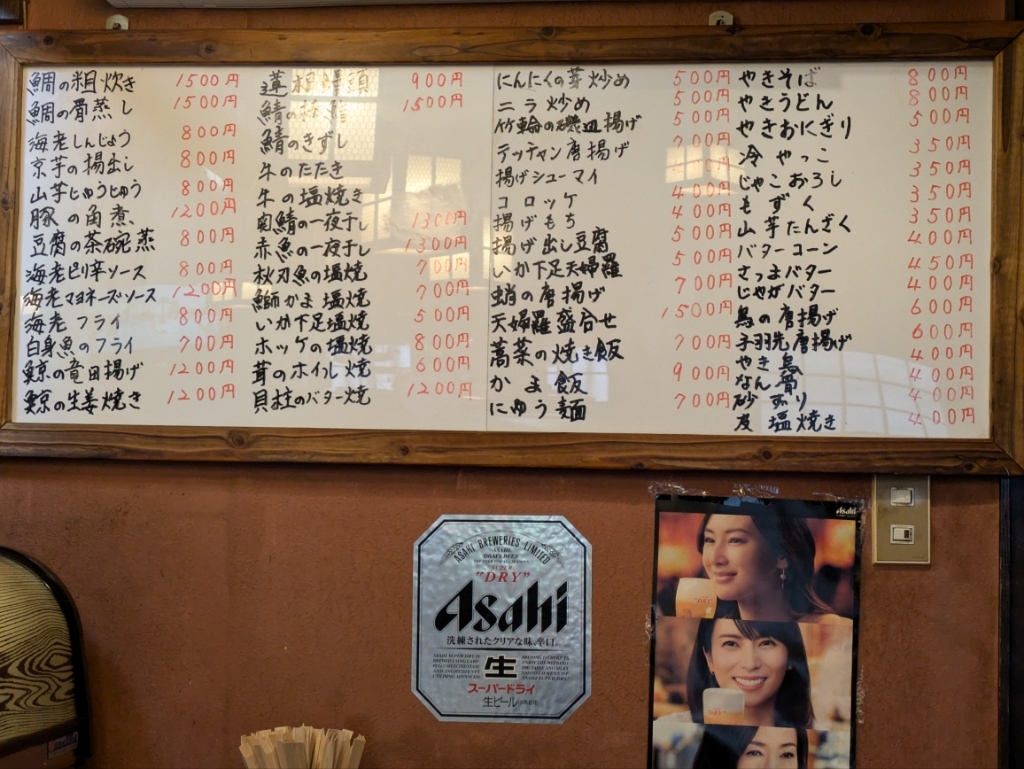 鯛の粗炊き 1500円
鯛の骨蒸し 1500円
海老しんじょう 800円
京芋の揚出し 800円
山芋じゅうじゅう 800円
豚の角煮 1200円
豆腐の茶碗蒸 800円
海老ピリ辛ソース 800円
海老マヨネーズソース 1200円
海老フライ 800円
白身魚のフライ 700円
鯨の竜田揚げ 1200円
鯨の生姜焼き 1200円
蓮根饅頭 900円
鯖の棒鮨 1500円
鯖のきずし
牛のたたき
牛の塩焼き
奥鯖の一夜干し 1300円
赤魚の一夜干し 1300円
秋刀魚の塩焼 700円
鰤かま塩焼 700円
いか下足塩焼 500円
ホッケの塩焼 800円
茸のホイル焼 600円
貝柱のバター焼 1200円
にんにくの芽炒め 500円
ニラ炒め 500円
竹輪の磯皿揚げ 500円
テッチャン唐揚げ 700円
揚げシューマイ
コロッケ 400円
揚げもち 400円
揚げ出し豆腐 500円
いか下足天婦羅 500円
蛸の唐揚げ 700円
天婦羅盛合せ 1500円
高菜の焼き飯 700円
かま飯 900円
にゅう麺 700円
やきそば 800円
やきうどん 800円
やきおにぎり 500円
冷やっこ 350円
じゃこおろし 350円
もずく 350円
山芋たんざく 350円
バターコーン 400円
さつまバター 450円
じゃがバター 400円
鳥の唐揚げ 600円
手羽先唐揚げ 600円
やき鳥 400円
なん骨 400円
砂ずり 400円
皮塩焼き 400円
ASAHI BREWERIES LIMITED
SUPER
"DRY"
Asahi
洗練されたクリアな味、辛口。
生
スーパードライ
生ビール
Asahi